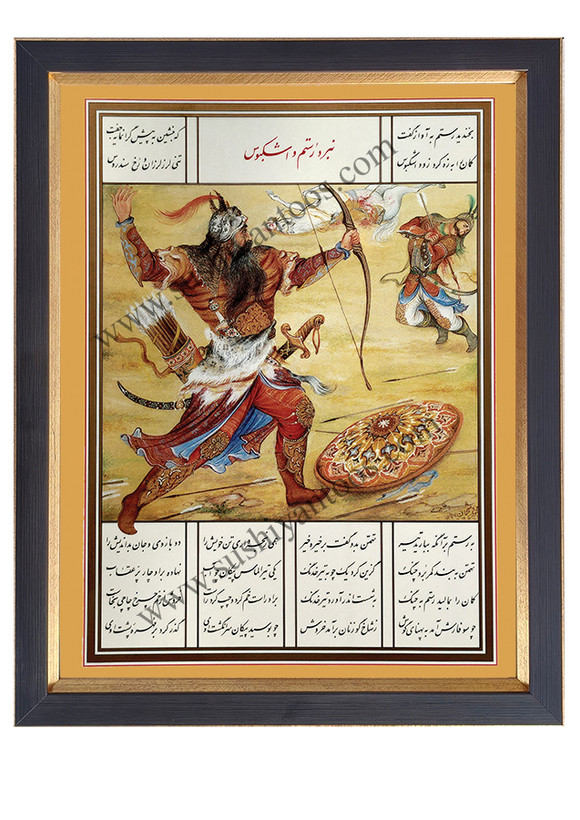 نبرد رستم و اشکبوس
بخندید رستم به آواز گفت که بنشین به پیش گرانمایه جفت
کمان را به زه کرد زود اشکبوس تنی لرز لرزان و رخ سندروس
به رستم بر آنگه ببارید تیر تهمتن بدو گفت بر خیره خیر همی رنجه داری تن خویش را دو بازوی و جان بداندیش را
تهمتن به بند کمر برد چنگ گزین کرد یک چوبه تیر خدنگ یکی تیر الماس پیکان چو آب نهاده بر او چار پر عقاب
کمان را بمالید رستم به چنگ به شست اندر آورد تیر خدنگ بر او راست خم کرد و چپ کرد راست خروش از خم چرخ چاچی بخاست
چو سوفارش آمد به پهنای گوش ز شاخ گوزنان برآمد خروش چو بوسید پیکان سرانگشت اوی گذر کرد بر مهره پشت اوی
www.sushiyantoos.com
www.sushiyantoos.com